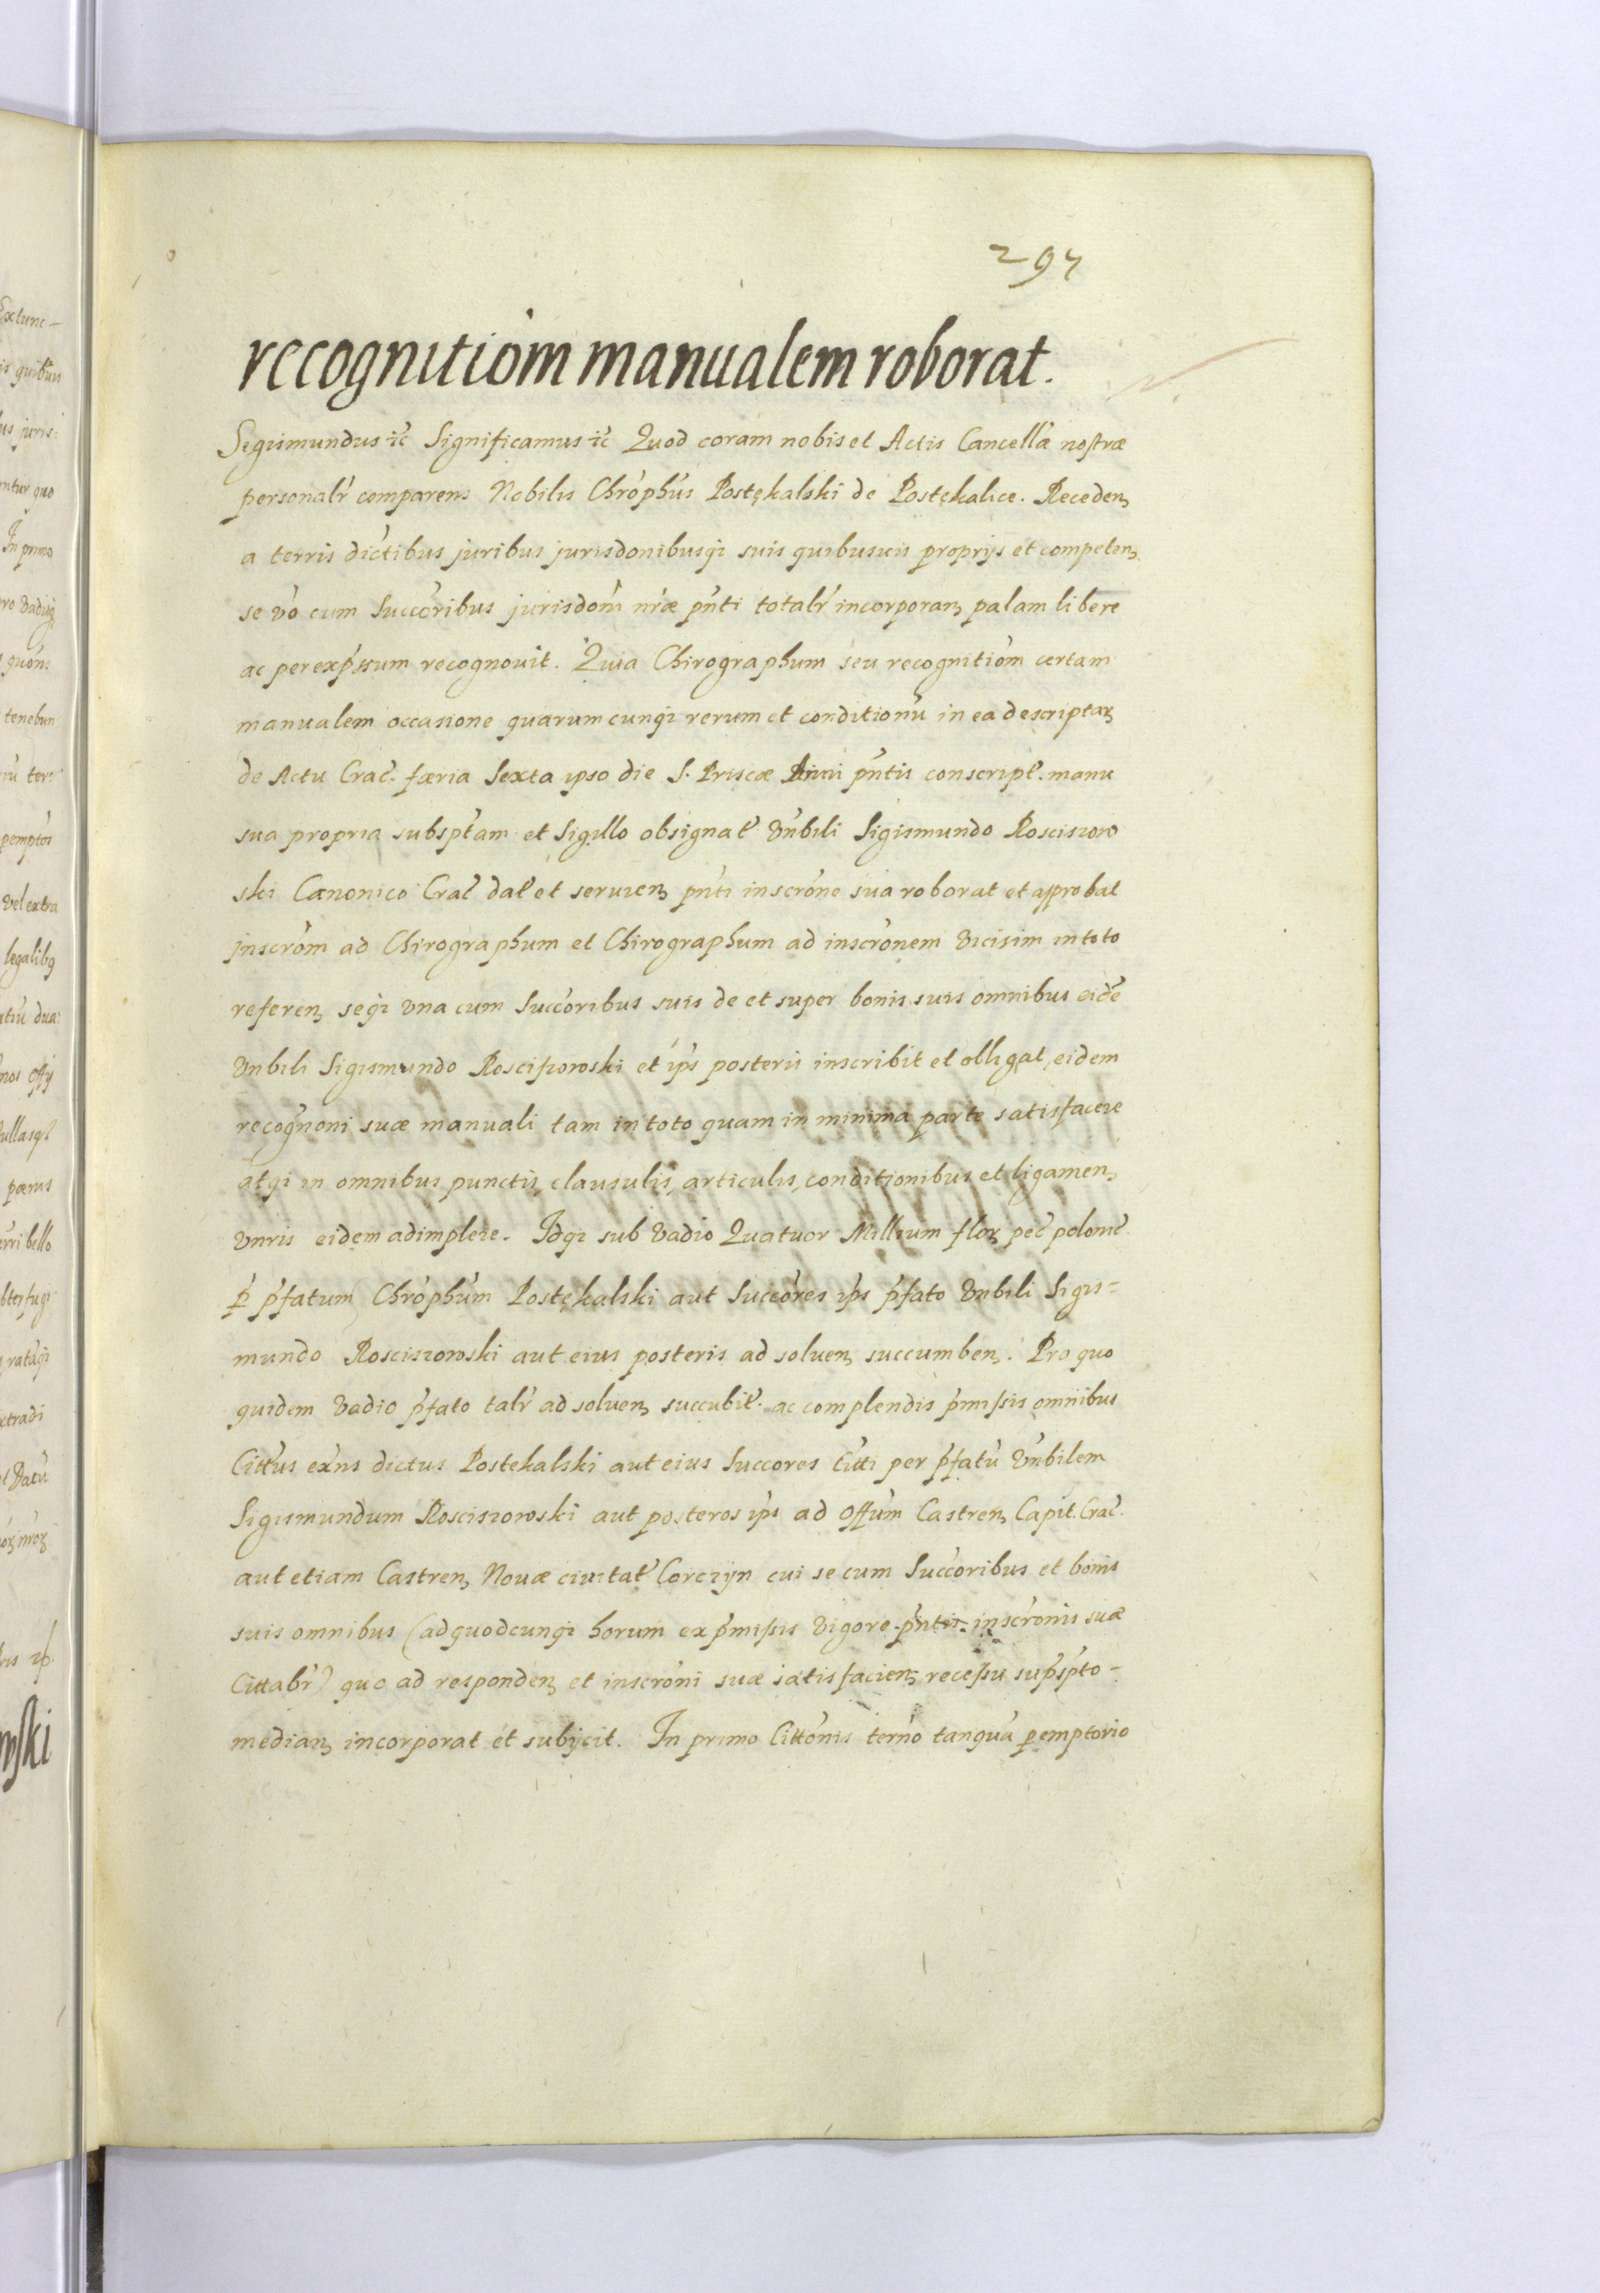 297
recognitiom manualem roborat.
Sigismundus ic Significamus ic Quod coram nobis et Actis Cancellã nostræ
personalr comparens Nobilis Chrophus Postękalski de Postękalice. Receden
a terris dictibus juribus jurisdonibusqz suis quibusuis proprijs et competen
se vo cum Succoribus jurisdom nræ pnti totalr incorporan palam libere
ac per expssum recognouit. Quia Chirographum seu recognitiom certam
manualem occasione quarumcunqz rerum et conditionu in ea descriptar
de Actu Crac. færia Sexta ipso die S. Priscæ Anni pntis conscript. manu
sua propria subsptam et Sigillo obsignat Vnbili Sigismundo Rosciszow
ski Canonico Crac dat et seruien pnti inscrone sua roborat et approbat
jnscrom ad Chirographum et Chirographum ad inscronem vicisim in toto
referen seqz vna cum Succoribus suis de et super bonis suis omnibus eidē
Vnbili Sigismundo Rosciszowski et ips posteris inscribit et obligat eidem
recognoni suæ manuali tam in toto quam in minima parte satisfacere
atqz in omnibus punctis, clausulis, articulis, conditionibus et ligamen
vnris eidem adimplere. Idqz sub Vadio Quatuor Millium flor pec polonic
p pfatum Chrophum Postękalski aut Succores ips pfato Vnbili Sigis=
mundo Rosciszowski aut eius posteris ad soluen succumben. Pro quo
quidem vadio pfato talr ad soluen succubit. ac complendis pmissis omnibus
Cittus exns dictus Postekalski aut eius Succores Citti per pfatu Vnbilem
Sigismundum Rosciszowski aut posteros ips ad Offum Castren Capit. Crac.
aut etiam Castren Nouæ ciuitat Corczyn cui se cum Succoribus et bonis
suis omnibus (ad quodcunqz horum ex pmissis vigore pntis inscronis suæ
Cittabr) quo ad responden et inscroni suæ satisfacien recessu supspto-
median incorporat et subijcit. In primo Cittonis terno tanqua pemptorio